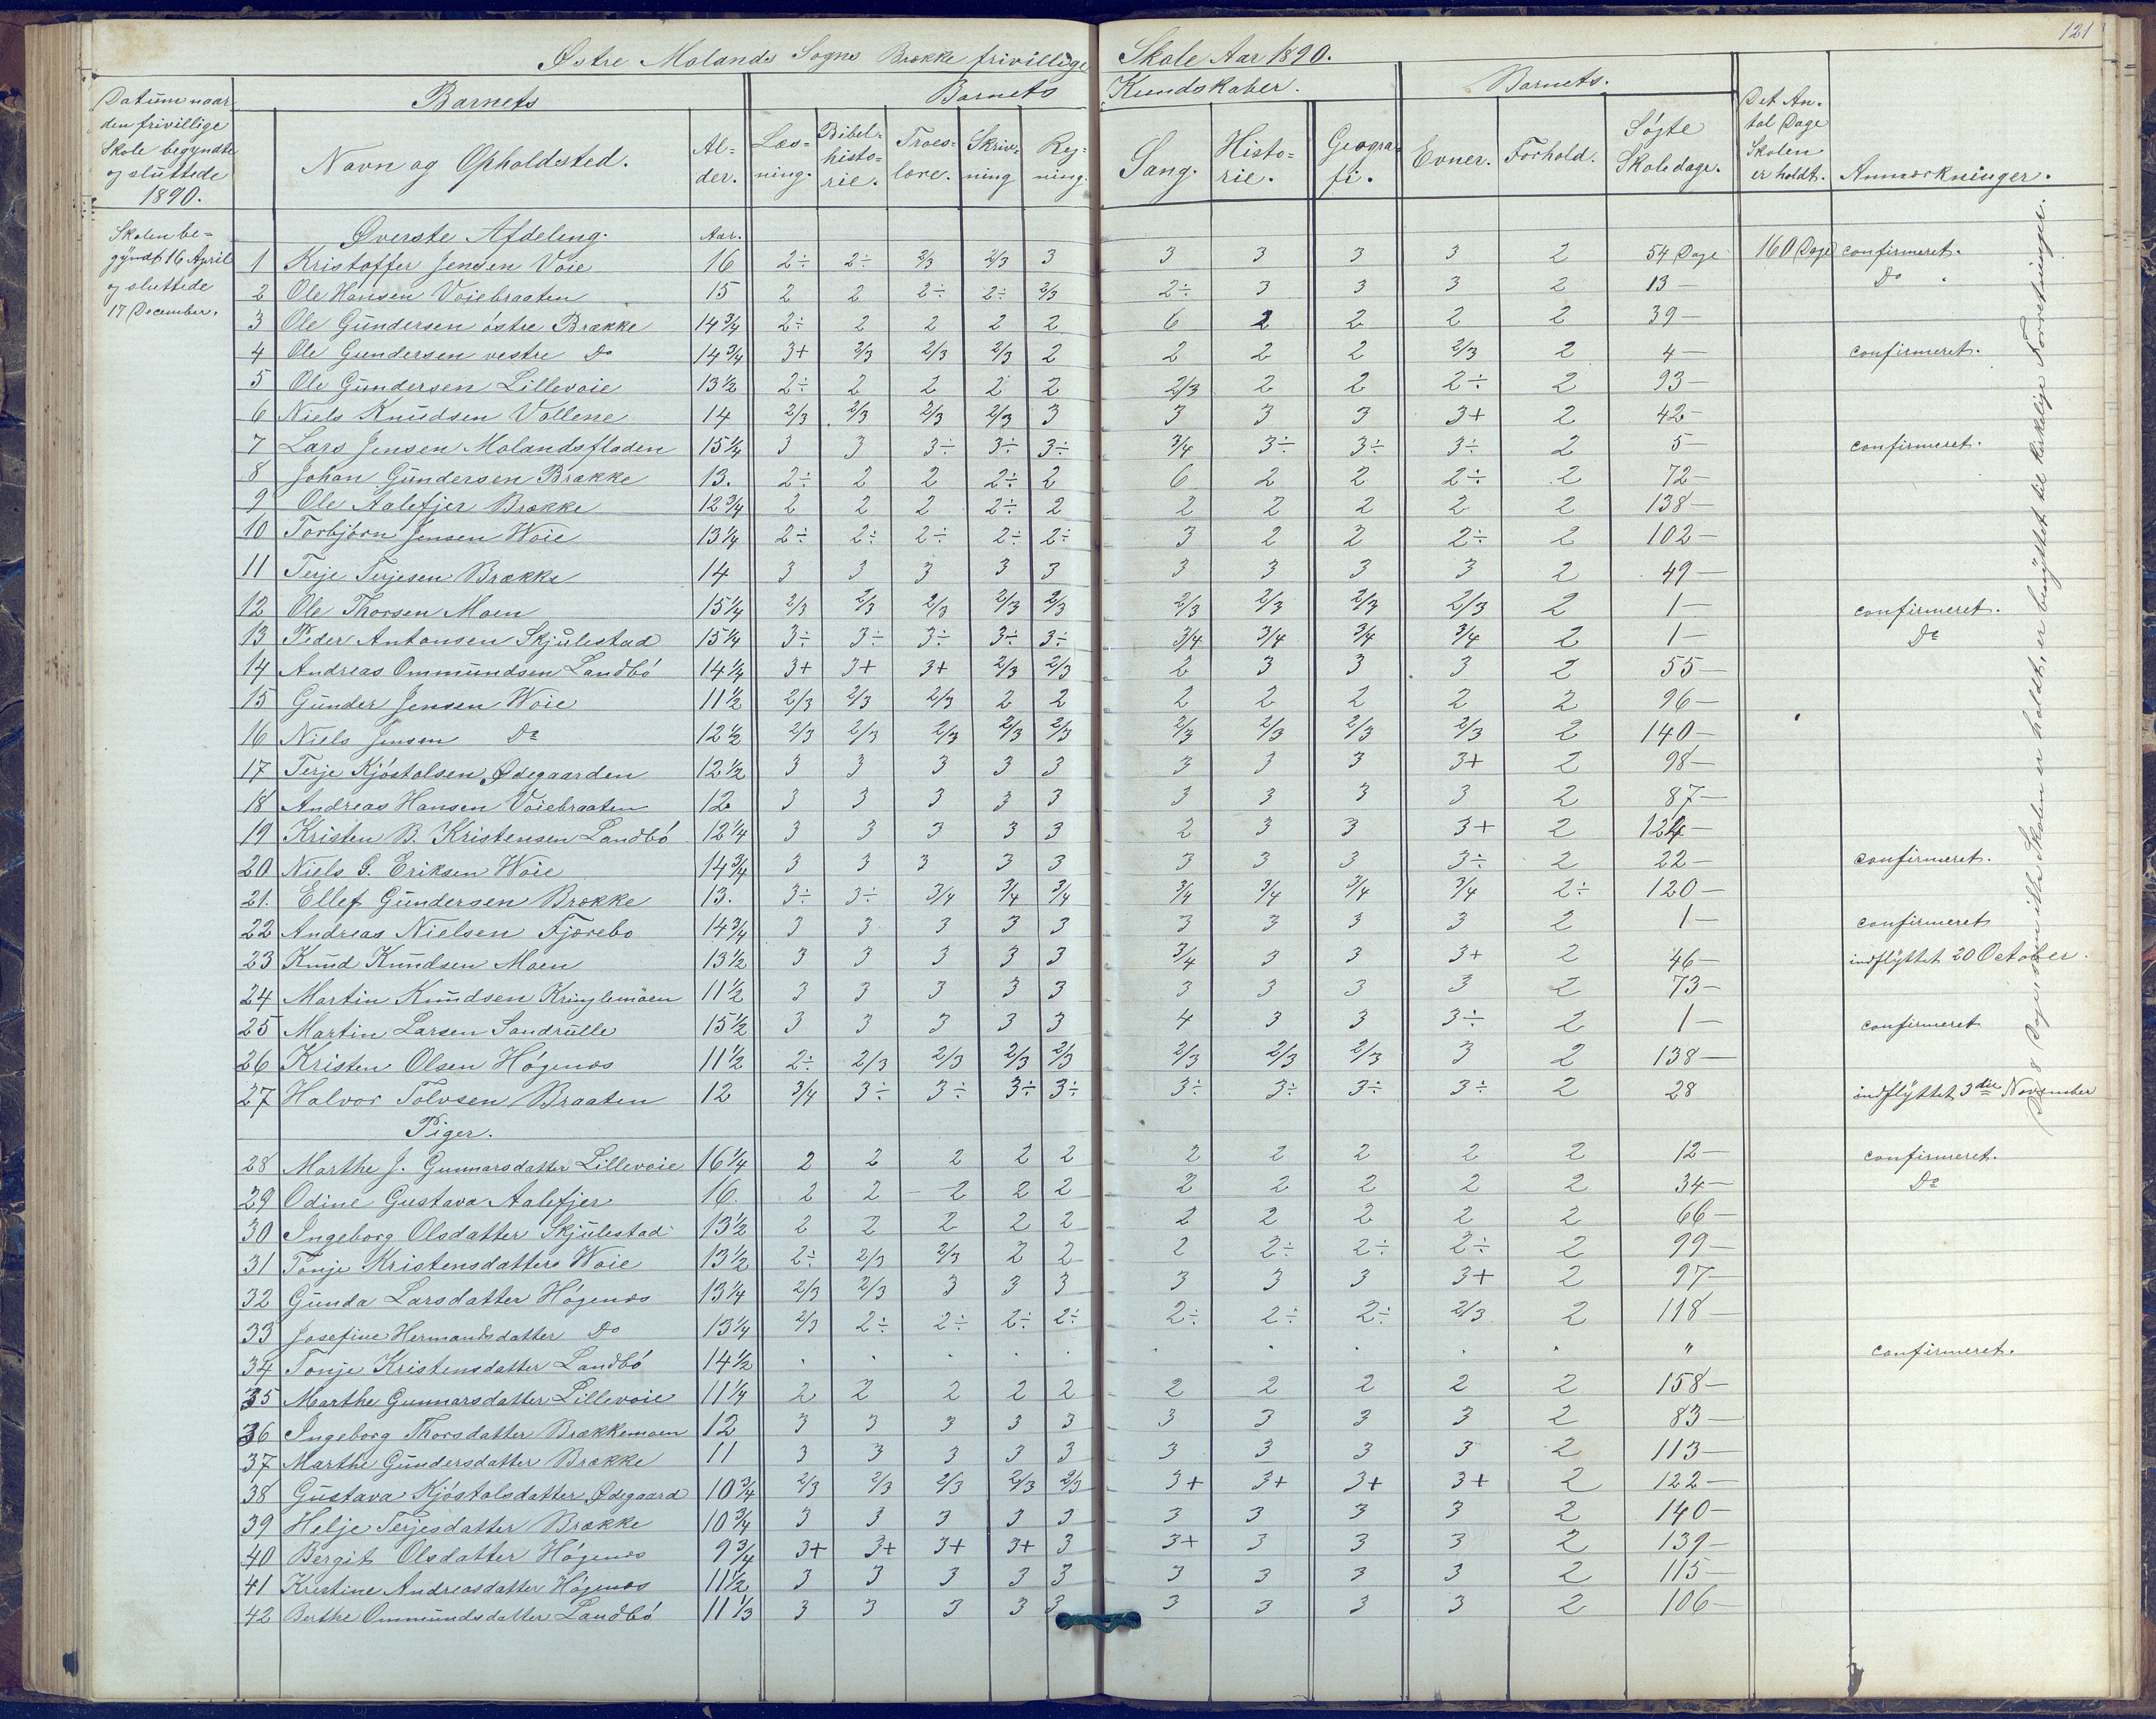 121
Østre Molands Sogns Brække frivillige Skole Aar 1890.
Datum naar den frivillige Skole begyndte og sluttede 1890.
Barnets
Barnets Kundskaber.
Barnets.
Det Antal Dage Skolen er holdt.
Anmærkninger.
Navn og Opholdssted. Alder. Læsning. Bibelhistorie. Troeslære. Skrivning Regning. Sang. Historie. Geografi. Evner. Forhold. Søgte Skoledage.
Skolen begyndt 16 April og sluttede 17 December.
Øverste Afdeling. Aar.
1 Kristoffer Jensen Voie 16 2÷ 2÷ 2/3 2/3 3 3 3 3 3 2 54 Dage 160 Dage confirmeret.
2 Ole Hansen Voiebraaten 15 2 2 2÷ 2÷ 2/3 2÷ 3 3 3 2 13 — Do
3 Ole Gundersen østre Brække 14 3/4 2÷ 2 2 2 2 6 2 2 2 2 39 —
4 Ole Gundersen vestre Do 14 3/4 3+ 2/3 2/3 2/3 2 2 2 2 2/3 2 4 — confirmeret.
5 Ole Gundersen Lillevoie 13 1/2 2÷ 2 2 2 2 2/3 2 2 2÷ 2 93 —
6 Niels Knudsen Vollene 14 2/3 2/3 2/3 2/3 3 3 3 3 3+ 2 42 —
7 Lars Jensen Molandsfladen 15 1/4 3 3 3÷ 3÷ 3÷ 3/4 3÷ 3÷ 3÷ 2 5 — confirmeret.
8 Johan Gundersen Brække 13. 2÷ 2 2 2÷ 2 6 2 2 2÷ 2 72 —
9 Ole Aalefjer Brække 12 3/4 2 2 2 2÷ 2 2 2 2 2 2 138 —
10 Torbjörn Jensen Woie 13 1/4 2÷ 2÷ 2÷ 2÷ 2÷ 3 2 2 2÷ 2 102 —
11 Terje Terjesen Brække 14 3 3 3 3 3 3 3 3 3 2 49 —
12 Ole Thorsen Moen 15 1/4 2/3 2/3 2/3 2/3 2/3 2/3 2/3 2/3 2/3 2 1 — confirmeret.
13 Peder Antonsen Skjulestad 15 1/4 3÷ 3÷ 3÷ 3÷ 3÷ 3/4 3/4 3/4 3/4 2 1 — Do
14 Andreas Ommundsen Landbö 14 1/4 3+ 3+ 3+ 2/3 2/3 2 3 3 3 2 55 —
15 Gunder Jensen Woie 11 1/2 2/3 2/3 2/3 2 2 2 2 2 2 2 96 —
16 Niels Jensen Do 12 1/2 2/3 2/3 2/3 2/3 2/3 2/3 2/3 2/3 2/3 2 140 —
17 Terje Kjöstolsen Ødegaarden 12 1/2 3 3 3 3 3 3 3 3 3+ 2 98 —
18 Andreas Hansen Voiebraaten 12 3 3 3 3 3 3 3 3 3 2 87 —
19 Kristen B. Kristensen Landbö 12 1/4 3 3 3 3 3 2 3 3 3+ 2 124 —
20 Niels G. Eriksen Woie 14 3/4 3 3 3 3 3 3 3 3 3÷ 2 22 — confirmeret.
21. Ellef Gundersen Brække 13. 3÷ 3÷ 3/4 3/4 3/4 3/4 3/4 3/4 3/4 2÷ 120 —
22 Andreas Nielsen Fjærebo 14 3/4 3 3 3 3 3 3 3 3 3 2 1 — confirmeret
23 Knud Knudsen Moen 13 1/2 3 3 3 3 3 3/4 3 3 3+ 2 46 — indflyttet 20 October.
24 Martin Knudsen Kringlemoen 11 1/2 3 3 3 3 3 3 3 3 3 2 73 —
25 Martin Larsen Sandrülle 15 1/2 3 3 3 3 3 4 3 3 3÷ 2 1 — confirmeret
26 Kristen Olsen Högenæs 11 1/2 2÷ 2/3 2/3 2/3 2/3 2/3 2/3 2/3 3 2 138 —
27 Halvor Tolvsen Braaten 12 3/4 3÷ 3÷ 3÷ 3÷ 3÷ 3÷ 3÷ 3÷ 2 28 indflyttet 3die November
Piger.
28 Marthe J. Gunnarsdatter Lillevoie 16 1/4 2 2 2 2 2 2 2 2 2 2 12 — confirmeret.
29 Odine Gustava Aalefjer 16. 2 2 — 2 2 2 2 2 2 2 2 34 — Do
30 Ingeborg Olsdatter Skjulestad 13 1/2 2 2 2 2 2 2 2 2 2 2 66 —
31 Tonje Kristensdatters Woie 13 1/2 2÷ 2/3 2/3 2 2 2 2÷ 2÷ 2÷ 2 99 —
32 Gunda Larsdatter Högenæs 13 1/4 2/3 2/3 3 3 3 3 3 3 3+ 2 97 —
33 Josefine Hermansdatter Do 13 1/4 2/3 2÷ 2÷ 2÷ 2÷ 2÷ 2÷ 2÷ 2/3 2 118 —
34 Tonje Kristensdatter Landbö 14 1/2 . . . . . . . . . . " confirmeret.
35 Marthe Gunnarsdatter Lillevoie 11 1/4 2 2 2 2 2 2 2 2 2 2 158 —
36 Ingeborg Thorsdatter Brækkemoen 12 3 3 3 3 3 3 3 3 3 2 83 —
37 Marthe Gundersdatter Brække 11 3 3 3 3 3 3 3 3 3 2 113 —
38 Gustava Kjöstolsdatter Ødegaard 10 3/4 2/3 2/3 2/3 2/3 2/3 3+ 3+ 3+ 3+ 2 122 —
39 Helje Terjesdatter Brække 10 3/4 3 3 3 3 3 3 3 3 3 2 140 —
40 Bergit Olsdatter Högenæs 9 3/4 3+ 3+ 3+ 3+ 3 3+ 3 3 3 2 139 —
41 Kristine Andreasdatter Högenæs 11 1/2 3 3 3 3 3 3 3 3 3 2 115 —
42 Berthe Ommundsdatter Landbö 11 1/3 3 3 3 3 3 3 3 3 3 2 106 —
8 Dage som ikke Skolen er holdt, er benyttet til kirkelige Forretninger.